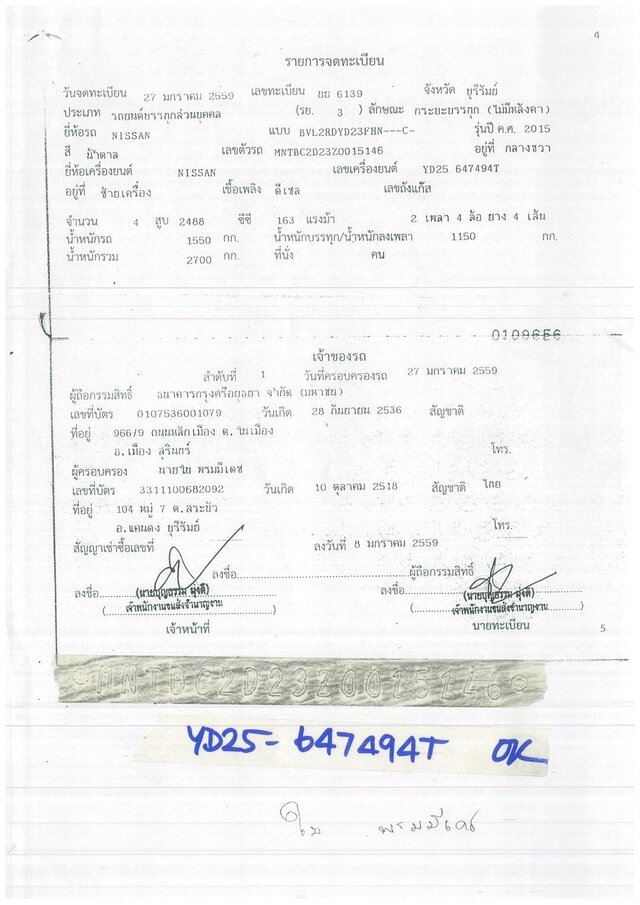 4
รายการจดทะเบียน
วันจดทะเบียน 27 มกราคม 2559 เลขทะเบียน ขย 6139 จังหวัด บุรีรัมย์
ประเภท รถยนต์บรรทุกส่วนบุคคล (รย. 3 ) ลักษณะ กระบะบรรทุก (ไม่มีหลังคา)
ยี่ห้อรถ NISSAN แบบ BVL2RDYD23FHN---C- รุ่นปี ค.ศ. 2015
สี น้ำตาล เลขตัวรถ MNTBC2D23Z0015146 อยู่ที่ กลางขวา
ยี่ห้อเครื่องยนต์ NISSAN เลขเครื่องยนต์ YD25 647494T
อยู่ที่ ซ้ายเครื่อง เชื้อเพลิง ดีเซล เลขถังแก๊ส
จำนวน 4 สูบ 2488 ซีซี 163 แรงม้า 2 เพลา 4 ล้อ ยาง 4 เส้น
น้ำหนักรถ 1550 กก. น้ำหนักบรรทุก/น้ำหนักลงเพลา 1150 กก.
น้ำหนักรวม 2700 กก. ที่นั่ง คน
01096E6
เจ้าของรถ
ลำดับที่ 1 วันที่ครอบครองรถ 27 มกราคม 2559
ผู้ถือกรรมสิทธิ์ ธนาคารกรุงศรีอยุธยา จำกัด (มหาชน)
เลขที่บัตร 0107536001079 วันเกิด 28 กันยายน 2536 สัญชาติ
ที่อยู่ 966/9 ถนนหลักเมือง ต.ในเมือง
อ.เมือง สุรินทร์ โทร.
ผู้ครอบครอง นายใบ พรมมีเดช
เลขที่บัตร 3311100682092 วันเกิด 10 ตุลาคม 2518 สัญชาติ ไทย
ที่อยู่ 104 หมู่ 7 ต.สระบัว
อ.แคนดง บุรีรัมย์ โทร.
สัญญาเช่าซื้อเลขที่ ลงวันที่ 8 มกราคม 2559
ลงชื่อ ผู้ถือกรรมสิทธิ์
ลงชื่อ (นายบุญธรรม มุ่งดี) ลงชื่อ (นายบุญธรรม มุ่งดี)
เจ้าพนักงานขนส่งชำนาญงาน เจ้าพนักงานขนส่งชำนาญงาน
เจ้าหน้าที่ นายทะเบียน 5
MNTBC2D23Z0015146
YD25-647494T OK
ใบ พรมมีเดช